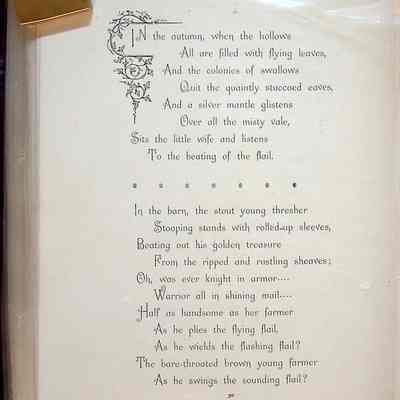 IN the autumn, when the hollows
All are filled with flying leaves,
And the colonies of swallows
Quit the quaintly stuccoed eaves,
And a silver mantle glistens
Over all the misty vale,
Sits the little wife and listens
To the beating of the flail.
In the barn, the stout young thresher
Stooping stands with rolled-up sleeves,
Beating out his golden treasure
From the ripped and rustling sheaves;
Oh, was ever knight in armor....
Warrior all in shining mail....
Half as handsome as her farmer
As he plies the flying flail,
As he wields the flashing flail?
The bare-throated brown young farmer
As he swings the sounding flail?